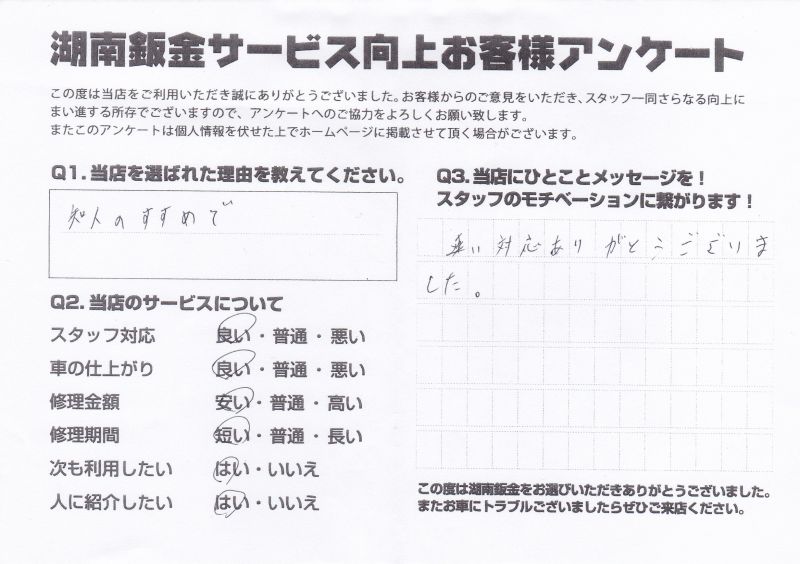 湖南鈑金サービス向上お客様アンケート
この度は当店をご利用いただき誠にありがとうございました。お客様からのご意見をいただき、スタッフ一同さらなる向上に
まい進する所存でございますので、アンケートへのご協力をよろしくお願い致します。
またこのアンケートは個人情報を伏せた上でホームページに掲載させて頂く場合がございます。
Q1.当店を選ばれた理由を教えてください。
知人のすすめで
Q2.当店のサービスについて
スタッフ対応 良い・普通・悪い
車の仕上がり 良い・普通・悪い
修理金額 安い・普通・高い
修理期間 短い・普通・長い
次も利用したい はい・いいえ
人に紹介したい はい・いいえ
Q3.当店にひとことメッセージを！
スタッフのモチベーションに繋がります！
対応ありがとうございま
した。
この度は湖南鈑金をお選びいただきありがとうございました。
またお車にトラブルございましたらぜひご来店ください。